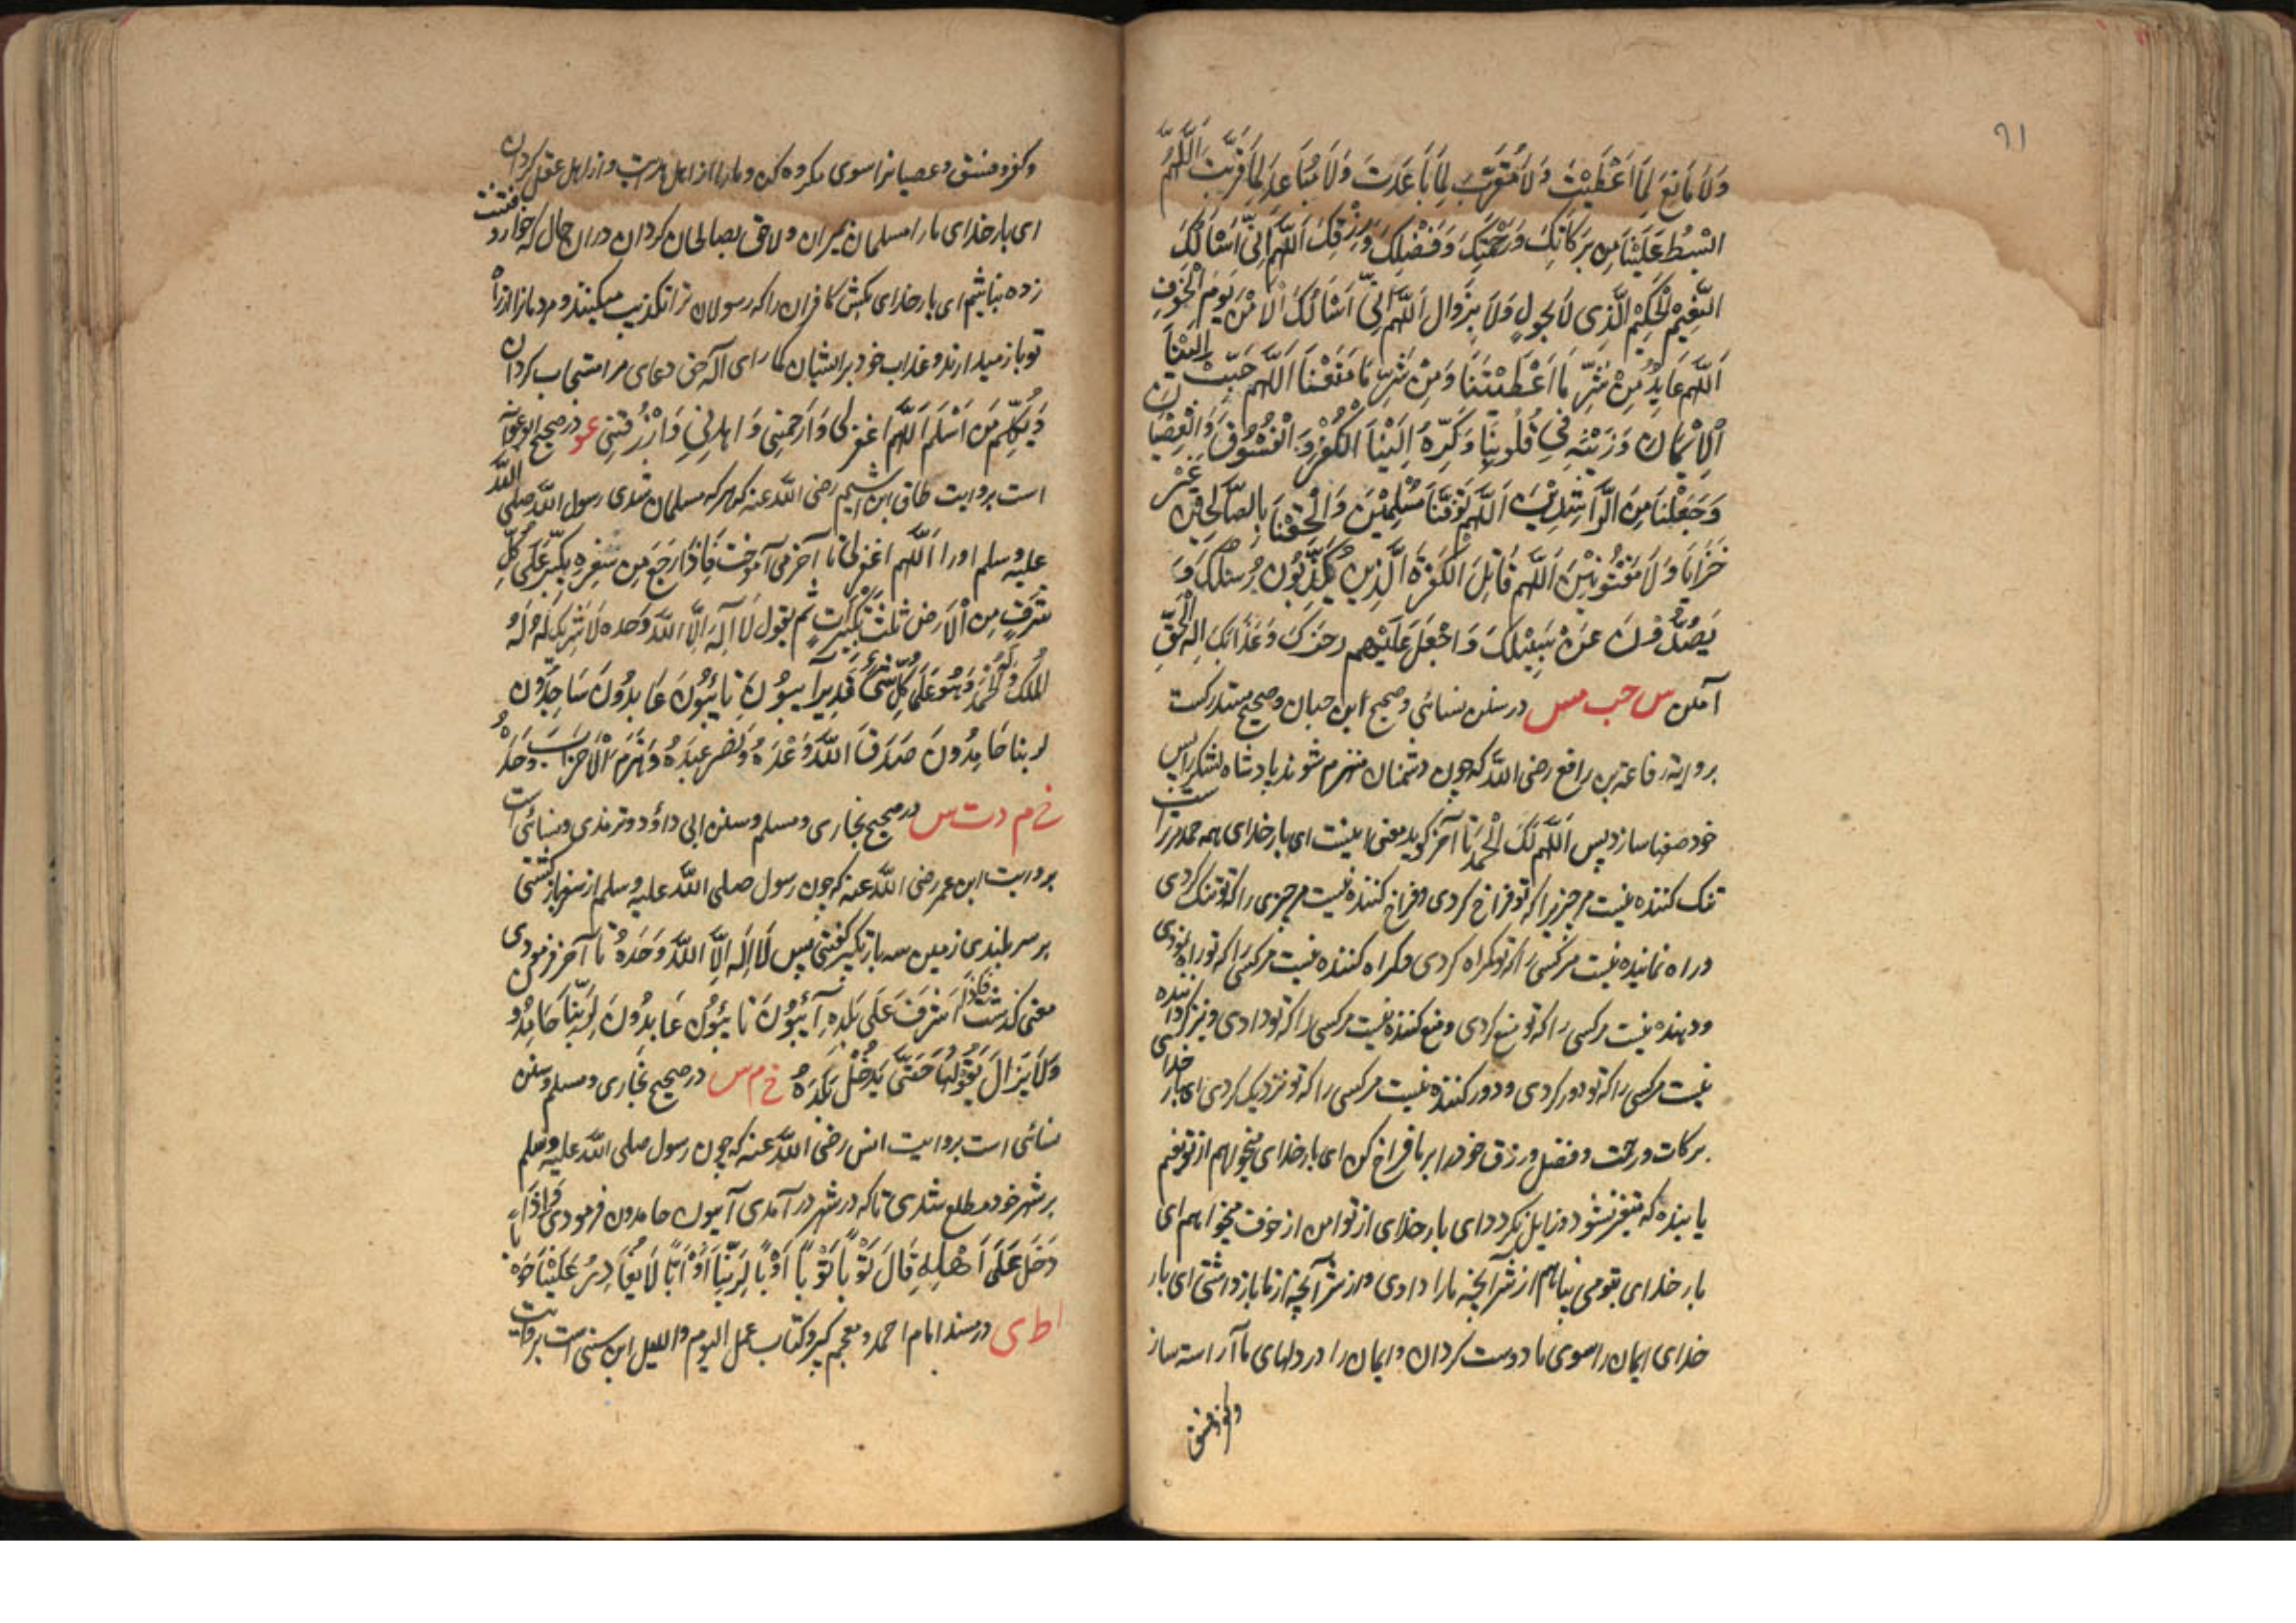 ٩١
وَلَا مَانِعَ لِمَا اَعْطَيْتَ وَلَا مُقَرِّبَ لِمَا بَاعَدْتَ وَلَا مُبَاعِدَ لِمَا قَرَّبْتَ اَللّٰهُمَّ
ابْسُطْ عَلَيْنَا مِن بَرَكَاتِكَ وَرَحْمَتِكَ وَفَضْلِكَ وَرِزْقِكَ اَللّٰهُمَّ اِنِّي اَسْاَلُكَ
النَّعِيْمَ الَّذِى لَا يَحُولُ وَلَا يَزُوال اَللّٰهُمَّ اِنِّي اَسْاَلُكَ الْاَمْنَ يَوْمَ الْخَوْفِ
اَللّٰهُمَّ عَايِذٌ مِنْ شَرِّ مَا اَعْطَيْتَنَا وَمِنْ شَرِّ مَا مَنَعْتَنَا اَللّٰهُمَّ حَبِّبْ اِلَيْنَا
الْاِيْمَانَ وَزَيِّنْهُ فِي قُلُوبِنَا وَكَرِّهْ اِلَيْنَا الْكُفْرَ وَالْفُسُوقَ وَالْعِصْيَانَ
وَجَعَلْنَا مِنَ الرَّاشِدِيْنَ اَللّٰهُمَّ تَوَفَّنَا مُسْلِمِيْنَ وَالْحِقْنَا بِالصَّالِحِيْنَ غَيْرَ
خَزَايَا وَلَا مَفْتُونِيْنَ اَللّٰهُمَّ قَاتِلِ الْكَفَرَةَ الَّذِيْنَ يُكَذِّبُونَ رُسُلَكَ وَ
يَصُدُّوْنَ عَنْ سَبِيْلِكَ وَاجْعَلْ عَلَيْهِم رجزك وَعَذَابَكَ اِلٰهَ الْحَقِّ
آمین س حب مس در سنن نسائی وصحیح ابن حبان وصحیح مستدرکست
بروایة رفاعة بن رافع رضی اللّٰه که چون دشمنان منهزم شوند پادشاه لشکر را پس
خود صفها سازد پس اَللّٰهُمَّ لَكَ الْحَمْدُ تا آخر گوید معنی اینست ای بار خدای همه حمد مر تراست
تنگ کننده نیست مر چیزیرا که تو فراخ کردی وفراخ کننده نیست مر چیزی را که تو تنگ کردی
وراه نماینده نیست مر کسی را که تو گمراه کردی وگمراه کننده نیست مر کسی را که تو راه نمودی
ودهنده نیست مر کسی را که تو منع کردی ومنع کننده نیست مر کسی را که تو دادی ونزدیک کننده
نیست مر کسی را که تو دور کردی ودور کننده نیست مر کسی را که تو نزدیک کردی ای بار خدا
برکات ورحمت وفضل ورزق خود را بر ما فراخ کن ای بار خدای میخواهم از تو نعیم
پاینده که متغیر نشود وزایل نگردد ای بار خدای از تو امن از خوف میخواهم ای
بار خدای بتو می پناهم از شر آنچه ما را دادی واز شر آنچه از ما باز داشتی ای بار
خدای ایمان را سوی ما دوست گردان وایمان را در دلهای ما آراسته ساز
وکفر وفسق
وکفر وفسق وعصیانرا سوی مکروه کن ومارا از اهل هدایت واز اهل عقل گردان
ای بار خدای مارا مسلمان میران ولاحق بصالحان گردان دران حال که خوار وفتنت
زده نباشیم ای بار خدای بکش کافران را که رسولان ترا تکذیب میکنند ومردمانرا از راه
تو باز میدارند وعذاب خود بر ایشان گمار ای اله حق دعای مرا مستجاب گردان
وَيُعَلِّمُ مَن اَسْلَمَ اَللّٰهُمَّ اغْفِرْ لِى وَارْحَمْنِى وَاهْدِنِي وَارْزُقْنِي عو در صحیح ابو عوانه
است بروایت طارق ابن اشیم رضی اللّٰه عنه که هر که مسلمان شدی رسول اللّٰه صلی اللّٰه
علیه وسلم اورا اَللّٰهُمَّ اغفرلی تا آخر می آموخت فَاِذَا رَجَعَ مِن سَفَرِهِ يُكَبِّرُ عَلَى كُلِّ
شَرَفٍ مِنَ الْاَرْضِ ثَلٰثَ تَكْبِيْرَاتٍ ثُمَّ يقول لَا اِلٰهَ اِلَّا اللّٰهُ وَحْدَه لَا شَرِيْكَ لَهُ لَهُ
الْمُلْكُ وَلَهُ الْحَمْدُ وَهُوَ عَلَى كُلِّ شَيْءٍ قَدِيْرٌ آيِبُوْنَ تَائِبُوْنَ عَابِدُوْنَ سَاجِدُوْنَ
لربنا حَامِدُونَ صَدَقَ اللّٰهُ وَعْدَهُ وَنَصَرَ عَبْدَهُ وَهَزَمَ الْاَحْزَابَ وَحْدَهُ
خ م د ت س در صحیح بخاری ومسلم وسنن ابی داؤد وترمذی ونسائی است
بروایت ابن عمر رضی اللّٰه عنه که چون رسول صلی اللّٰه علیه وسلم از سفر باز گشتی
بر سر بلندی زمین سه بار تکبیر گفتی پس لَا اِلٰهَ اِلَّا اللّٰهُ وَحْدَهُ تا آخر فرمودی
معنی گذشت فَاِذَا اَشْرَفَ عَلَى بَلَدِهِ آيِبُوْنَ تَائِبُوْنَ عَابِدُوْنَ لِرَبِّنَا حَامِدُو
وَلَا يَزَالُ يَقُوْلُهَا حَتَّى يَدْخُلَ بَلَدَهُ خ م س در صحیح بخاری ومسلم وسنن
نسائی است بروایت انس رضی اللّٰه عنه که چون رسول صلی اللّٰه علیه وسلم
بر شهر خود مطلع شدی تا که در شهر در آمدی آیبون حامدون فرمودی وَاِذَا
دَخَلَ عَلَى اَهْلِهِ قَالَ تَوْبًا تَوْبًا اَوْبًا لِرَبِّنَا اَوْبًا لَا يُغَادِرُ عَلَيْنَا حَوْبًا
ا ط ی در مسند امام احمد ومعجم کبیر وکتاب عمل الیوم واللیل ابن سنی است بروایت